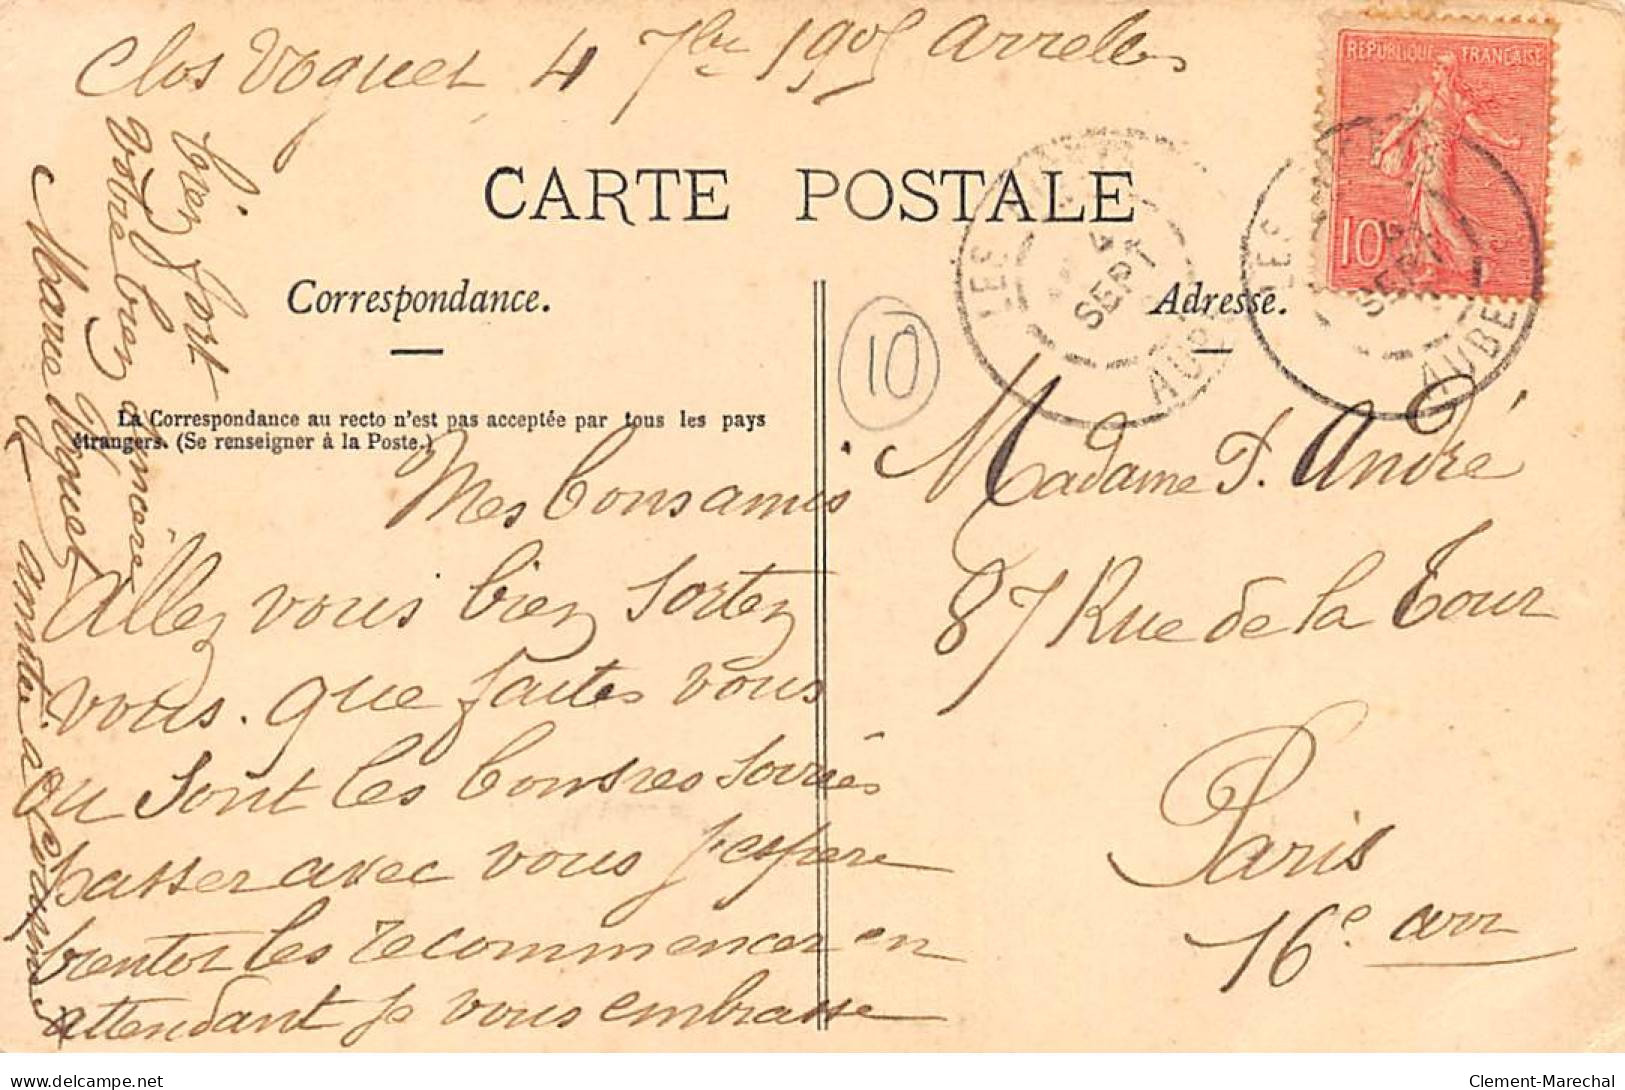 Clos Voguet 4 7bre 1905 Arrelles
RÉPUBLIQUE FRANÇAISE
10c
CARTE POSTALE
LES
4
SEPT
AUBE
LES
4
SEPT
AUBE
Correspondance.
Adresse.
10
La Correspondance au recto n'est pas acceptée par tous les pays
étrangers. (Se renseigner à la Poste.)
Mes bons amis
Allez vous bien sortez
vous. que faites vous
ou sont les bonnes soirées
passer avec vous j'espere
bientot les recommencer en
attendant je vous embrasse
bien fort
Votre bien sincère
Marie
amitiés à
Madame F. André
87 Rue de la Tour
Paris
16e arr
delcampe.net
Clement-Marechal